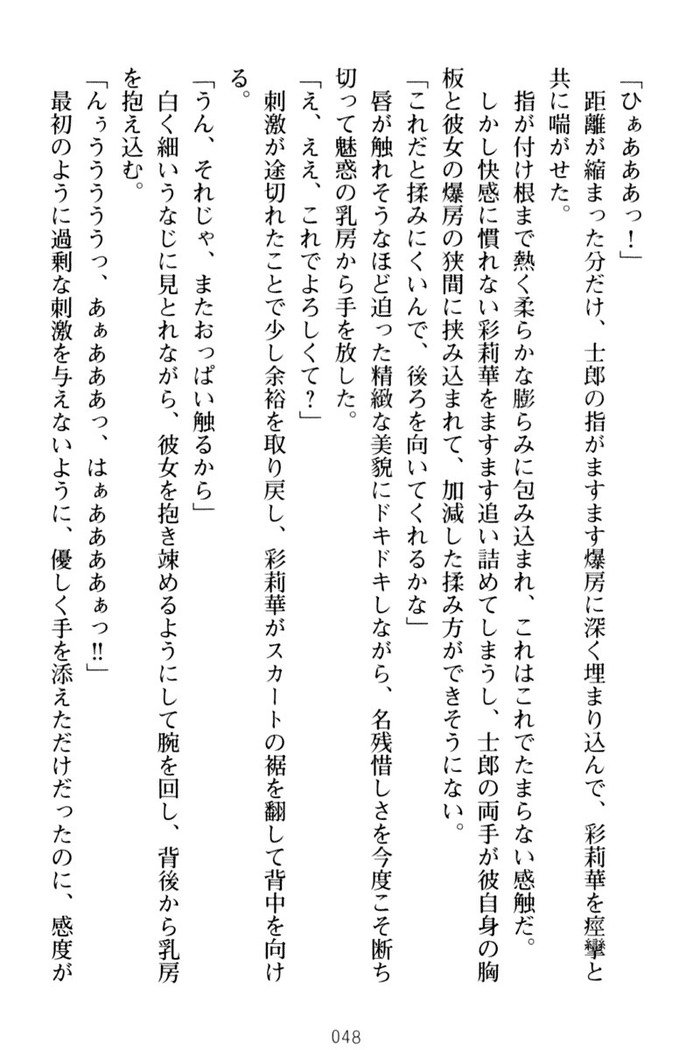 「ひぁあああっ！」
　距離が縮まった分だけ、士郎の指がますます爆房に深く埋まり込んで、彩莉華を痙攣と
共に喘がせた。
　指が付け根まで熱く柔らかな膨らみに包み込まれ、これはこれでたまらない感触だ。
　しかし快感に慣れない彩莉華をますます追い詰めてしまうし、士郎の両手が彼自身の胸
板と彼女の爆房の狭間に挟み込まれて、加減した揉み方ができそうにない。
「これだと揉みにくいんで、後ろを向いてくれるかな」
　唇が触れそうなほど迫った精緻な美貌にドキドキしながら、名残惜しさを今度こそ断ち
切って魅惑の乳房から手を放した。
「え、ええ、これでよろしくて？」
　刺激が途切れたことで少し余裕を取り戻し、彩莉華がスカートの裾を翻して背中を向け
る。
「うん、それじゃ、またおっぱい触るから」
　白く細いうなじに見とれながら、彼女を抱き竦めるようにして腕を回し、背後から乳房
を抱え込む。
「んぅうううううっ、あぁあああっ、はぁああああぁっ!!」
　最初のように過剰な刺激を与えないように、優しく手を添えただけだったのに、感度が
048